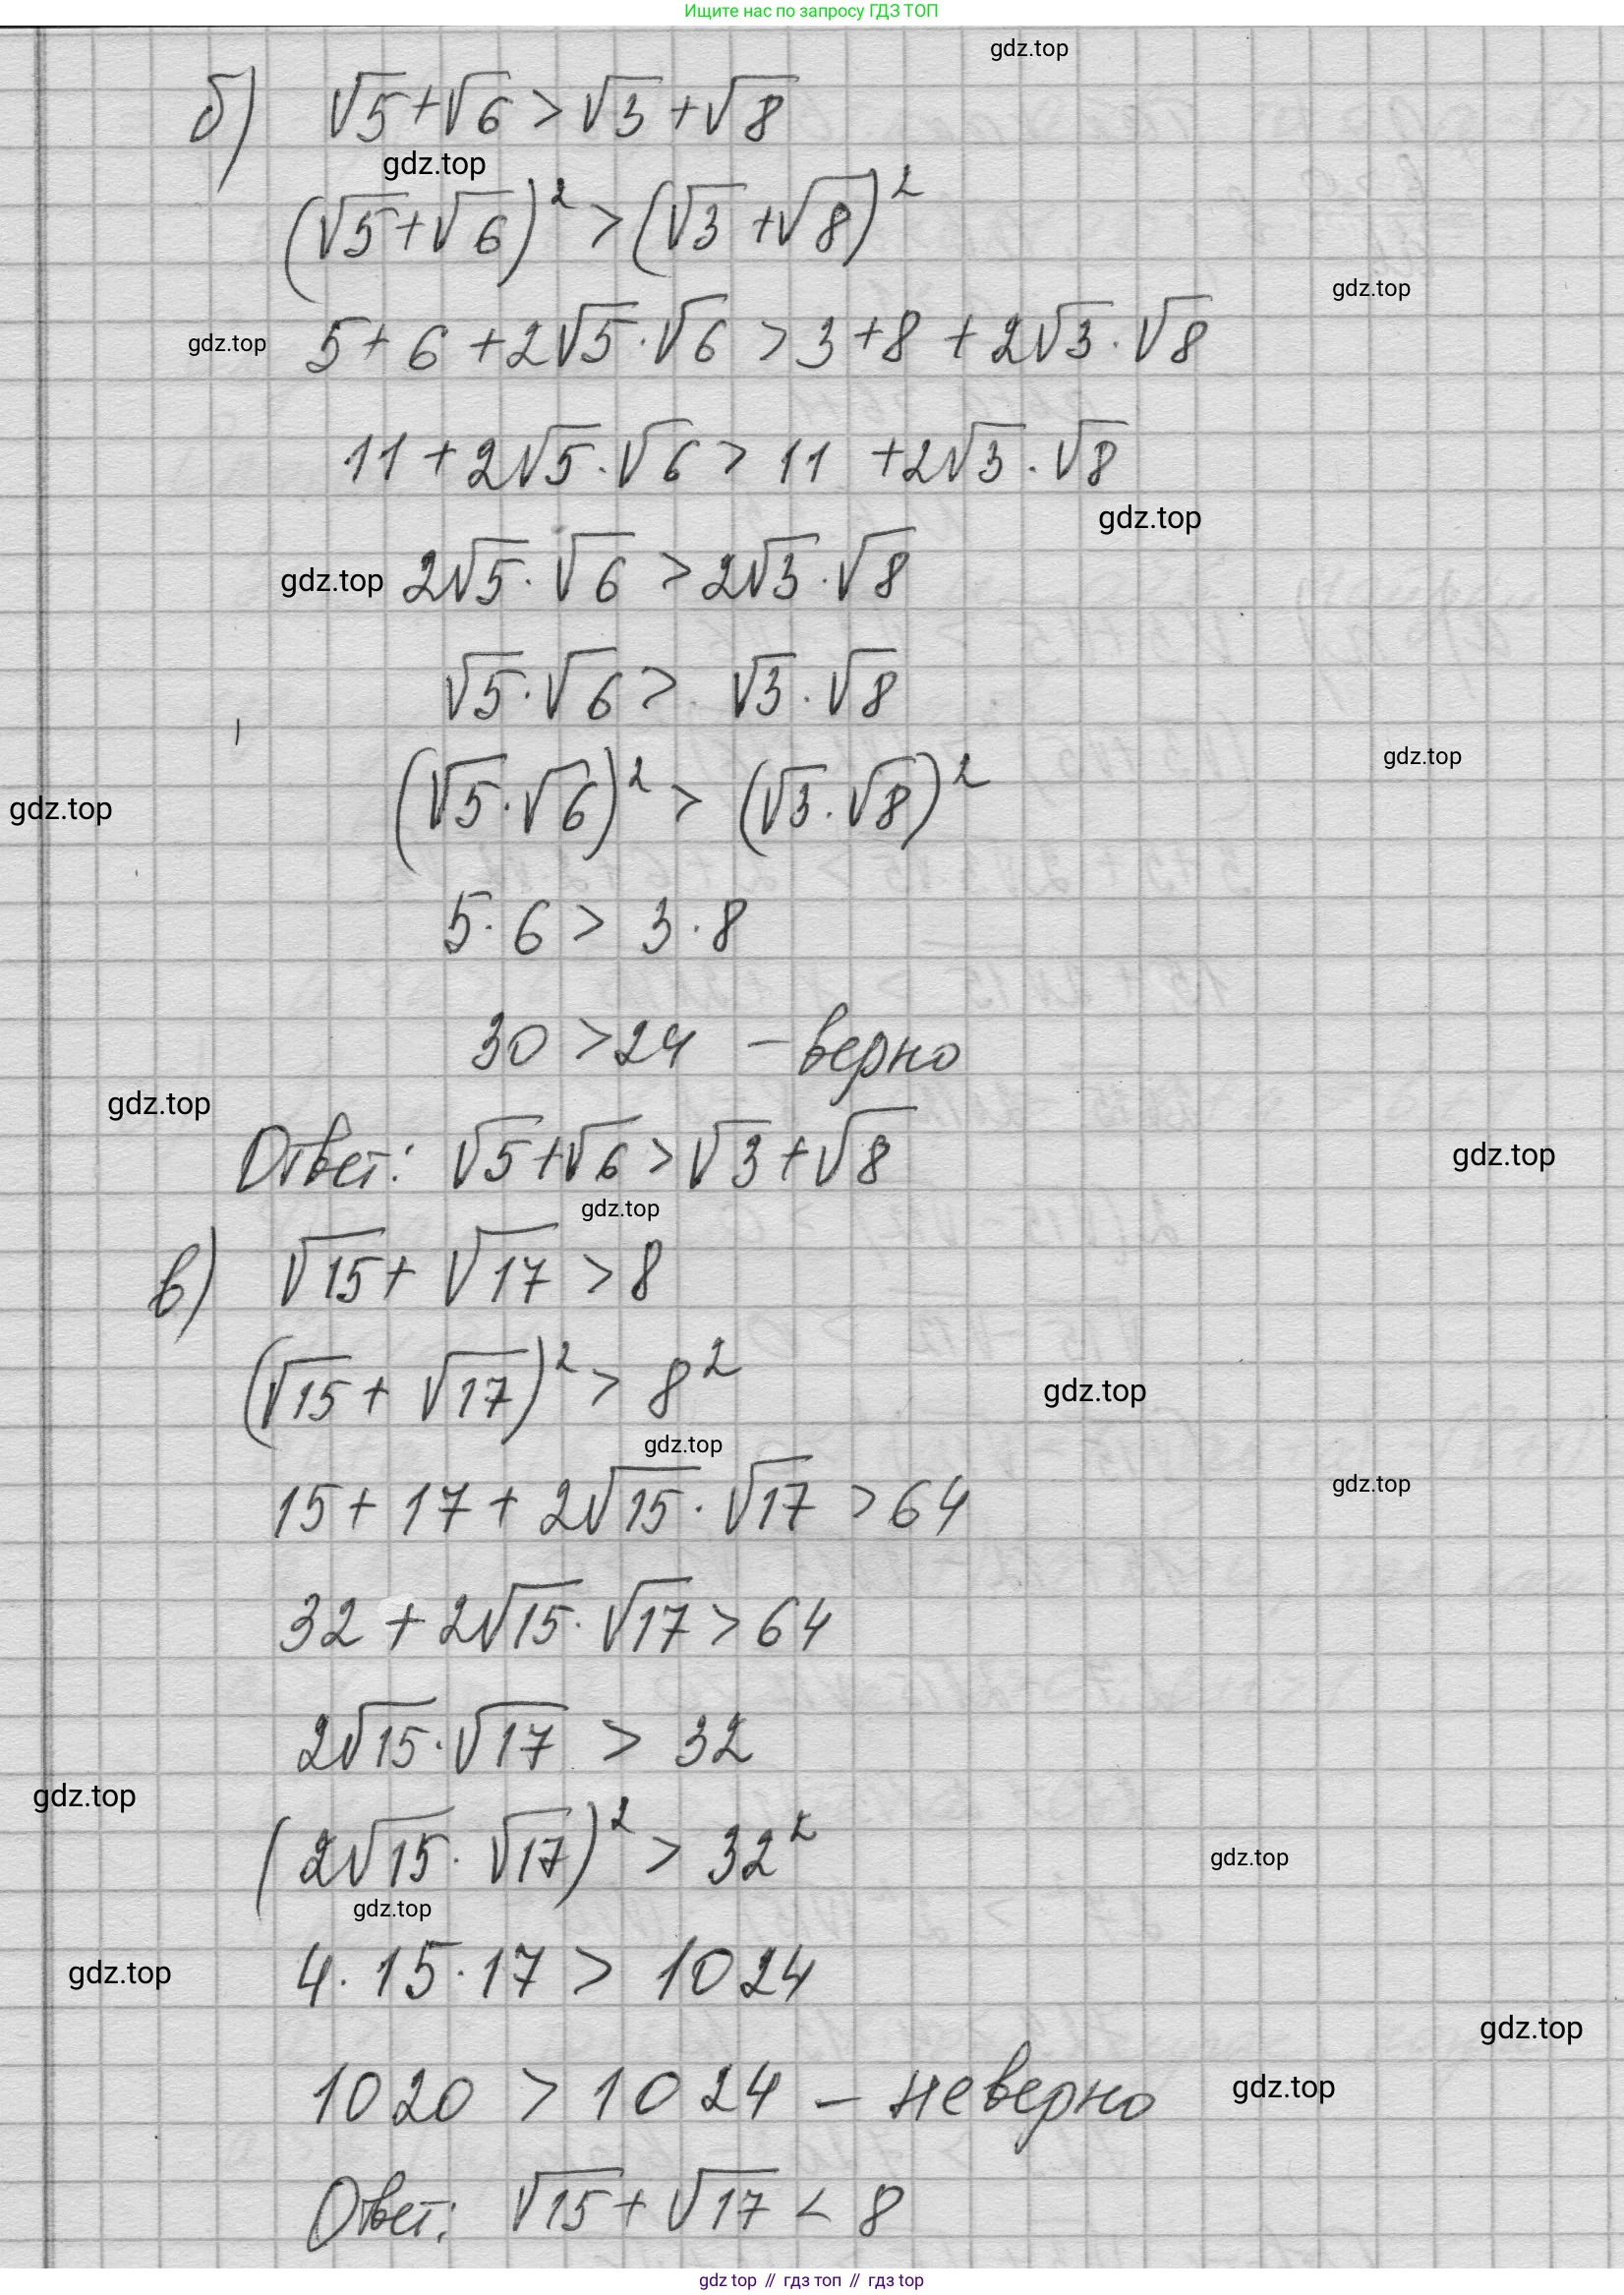 Ищите нас по запросу ГДЗ ТОП
gdz.top
б) √5+√6 > √3+√8
gdz.top
(√5+√6)² > (√3+√8)²
gdz.top
gdz.top
5+6+2√5·√6 > 3+8+2√3·√8
11+2√5·√6 > 11+2√3·√8
gdz.top
gdz.top
2√5·√6 > 2√3·√8
√5·√6 > √3·√8
gdz.top
gdz.top
(√5·√6)² > (√3·√8)²
5·6 > 3·8
30 > 24 – верно
gdz.top
Ответ: √5+√6 > √3+√8
gdz.top
gdz.top
в) √15+√17 > 8
(√15+√17)² > 8²
gdz.top
gdz.top
gdz.top
15+17+2√15·√17 > 64
32+2√15·√17 > 64
2√15·√17 > 32
gdz.top
(2√15·√17)² > 32²
gdz.top
gdz.top
gdz.top
4·15·17 > 1024
gdz.top
1020 > 1024 – неверно
gdz.top
Ответ: √15+√17 < 8
gdz top // гдз топ // гдз top